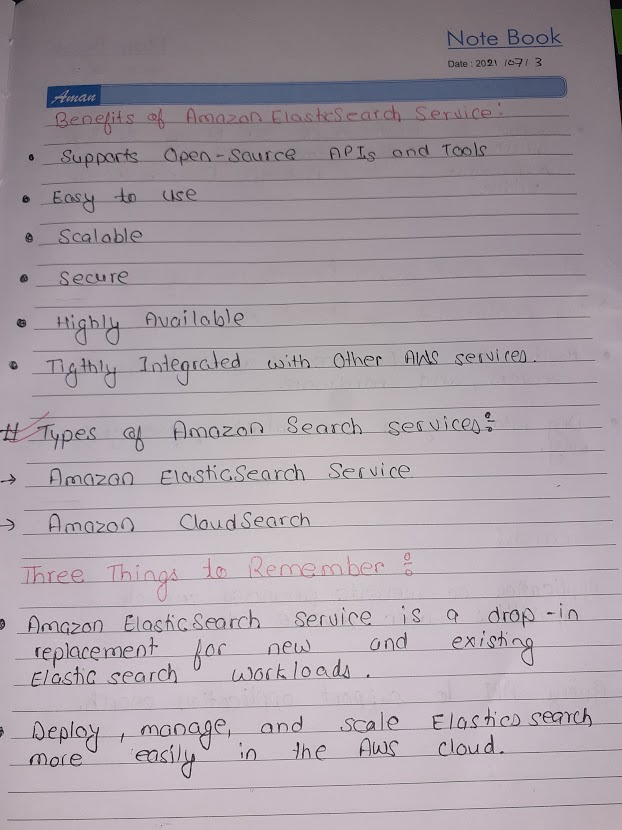 Note Book
Date : 2021 /07/ 3
Aman
Benefits of Amazon ElasticSearch Service:
• Supports Open-Source APIs and Tools
• Easy to use
• Scalable
• Secure
• Highly Available
• Tigthly Integrated with Other AWS services.
# Types of Amazon Search services:
→ Amazon ElasticSearch Service
→ Amazon CloudSearch
Three Things to Remember :
• Amazon ElasticSearch service is a drop-in
replacement for new and existing
Elastic search workloads.
• Deploy, manage, and scale Elastics search
more easily in the AWS cloud.